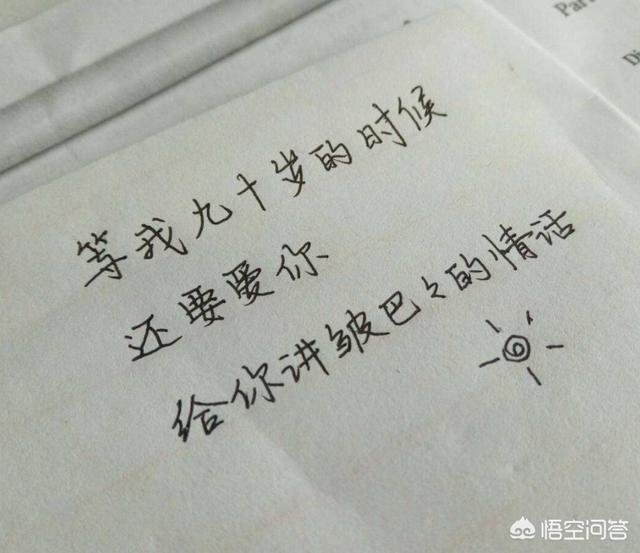 等我九十岁的时候
还要爱你
给你讲皱巴々的情话
Par
Di
悟空问答